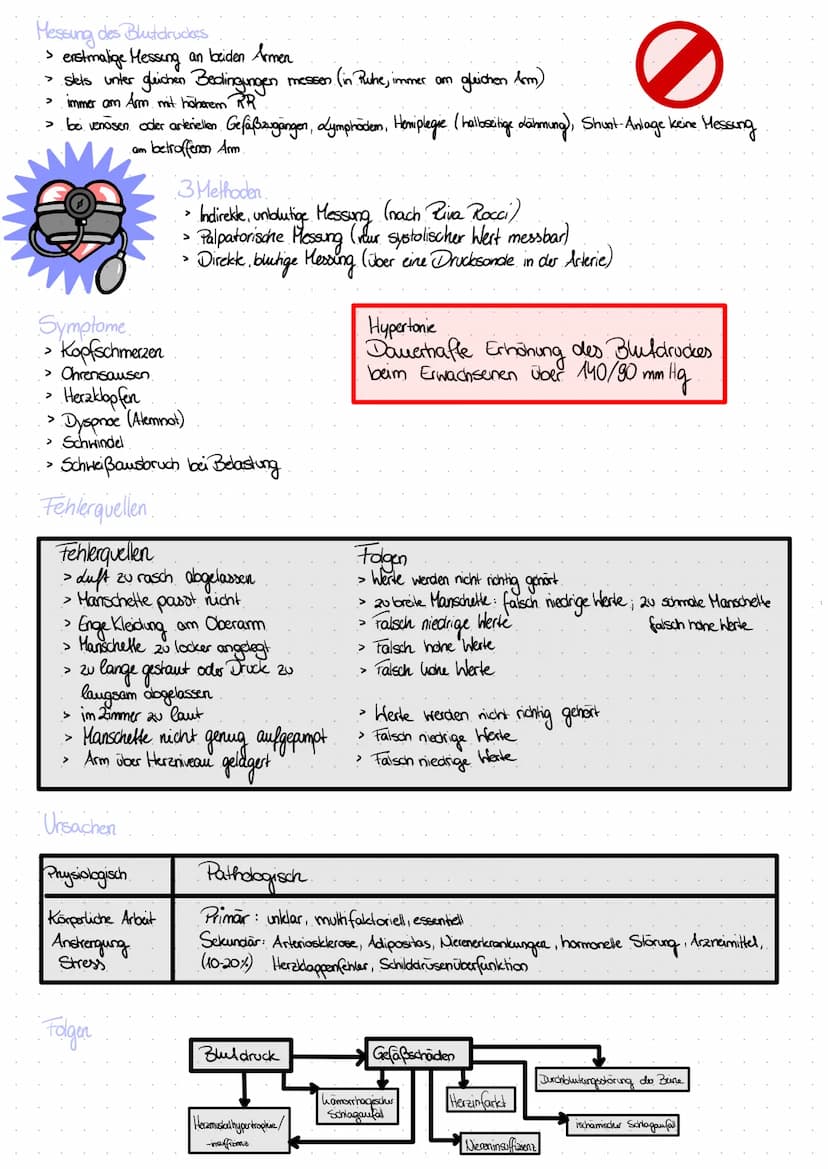 Messung des Blutdruckes
> erstmalige Messung an beiden Armen
> stets unter gleichen Bedingungen messen (in Ruhe, immer am gleichen Arm)
> immer am Arm mit höherem RR
> bei venösen oder arteriellen Gefäßzugängen, Lymphödem, Hemiplegie (halbseitige Lähmung), Shunt-Anlage keine Messung
am betroffenen Arm
3 Methoden
> Indirekte, unblutige Messung (nach Riva Rocci)
> Palpatorische Messung (nur systolischer Wert messbar)
> Direkte, blutige Messung (über eine Drucksonde in der Arterie)
Symptome
> Kopfschmerzen
> Ohrensausen
> Herzklopfen
> Dyspnoe (Atemnot)
> Schwindel
> Schweißausbruch bei Belastung
Hypertonie
Dauerhafte Erhöhung des Blutdruckes
beim Erwachsenen über 140/90 mm Hg
Fehlerquellen
Fehlerquellen
> Luft zu rasch abgelassen
> Manschette passt nicht
> Enge Kleidung am Oberarm
> Manschette zu locker angelegt
> zu lange gestaut oder Druck zu
langsam abgelassen
> im Zimmer zu laut
> Manschette nicht genug aufgepumpt
> Arm über Herzniveau gelagert
Folgen
> Werte werden nicht richtig gehört
> zu breite Manschette: falsch niedrige Werte; zu schmale Manschette
falsch hohe Werte
> Falsch niedrige Werte
> Falsch hohe Werte
> Falsch hohe Werte
> Werte werden nicht richtig gehört
> Falsch niedrige Werte
> Falsch niedrige Werte
Ursachen
Physiologisch
Pathologisch
Körperliche Arbeit
Anstrengung
Stress
Primär: unklar, multifaktoriell, essentiell
Sekundär: Arteriosklerose, Adipositas, Nierenerkrankungen, hormonelle Störung, Arzneimittel,
(10-20%) Herzklappenfehler, Schilddrüsenüberfunktion
Folgen
Blutdruck
Gefäßschäden
Durchblutungsstörung der Beine
hämorrhagischer
Schlaganfall
Herzinfarkt
Herzmuskelhypertrophie/
-insuffizienz
ischämischer Schlaganfall
Niereninsuffizienz